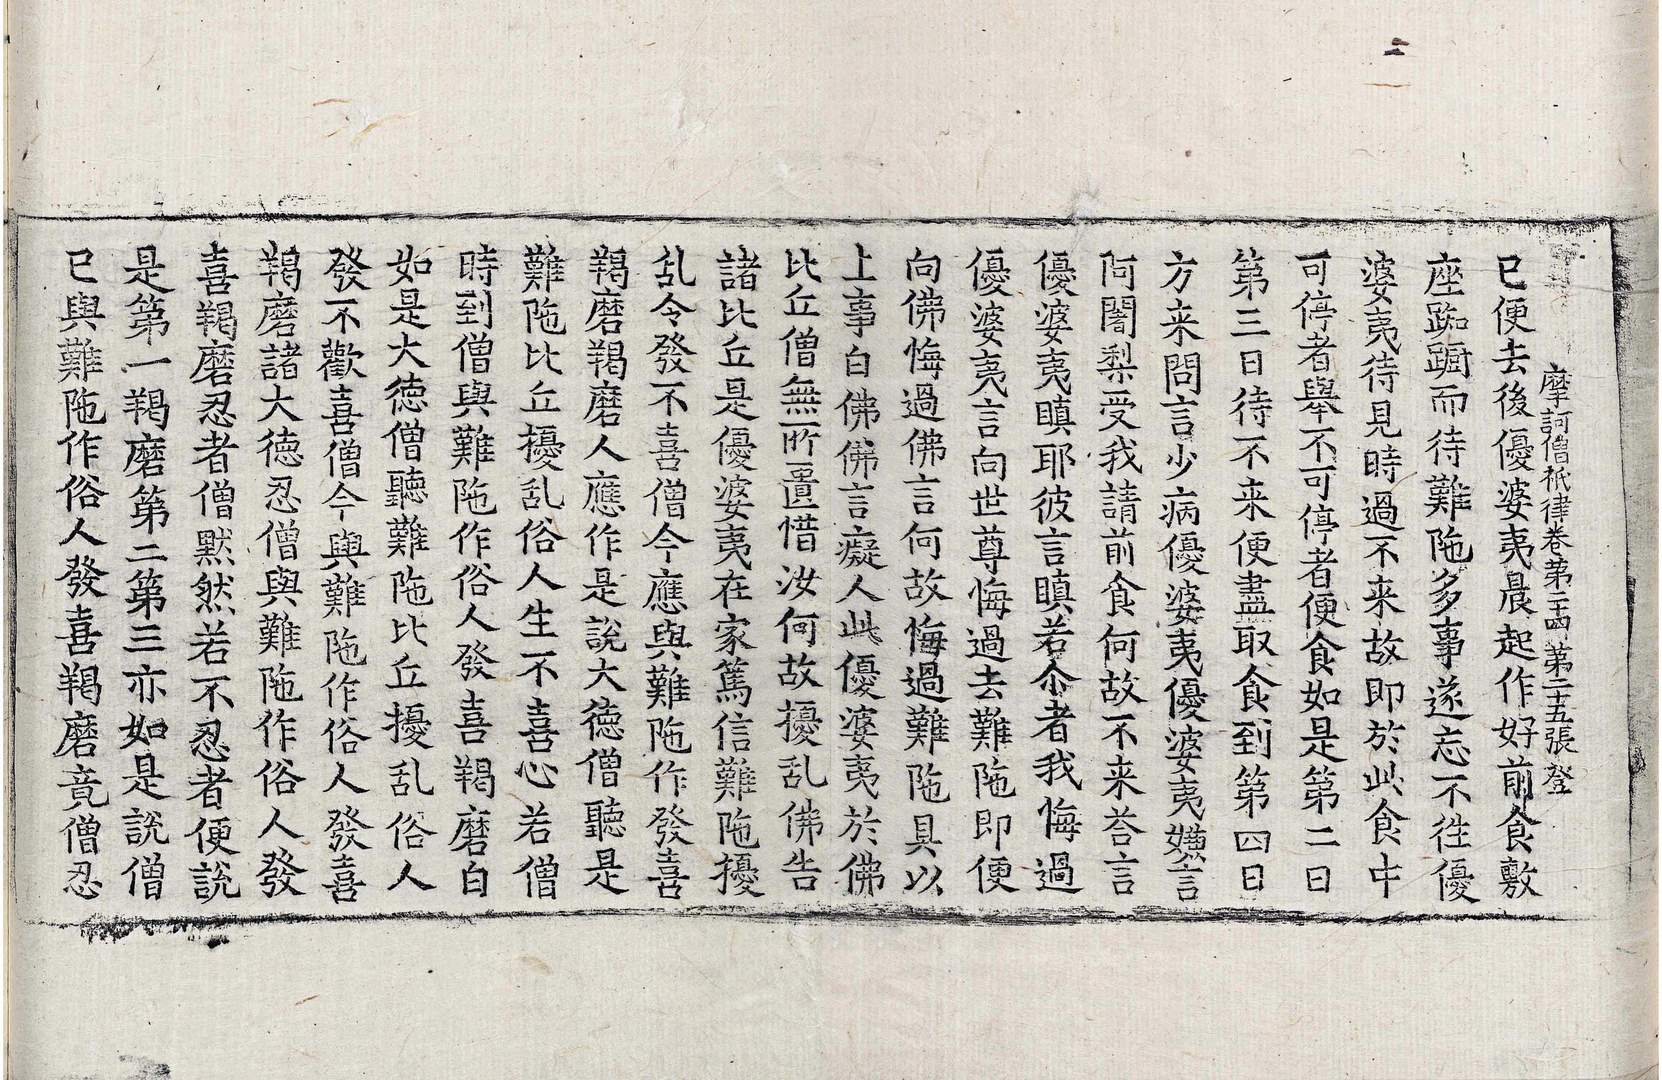 摩訶僧祇律卷第二十四 第二十五張 登
已便去後優婆夷晨起作好前食敷
座踟蹰而待難陁多事遂忘不徃優
婆夷待見時過不来故即於此食中
可停者舉不可停者便食如是第二日
第三日待不来便盡取食到第四日
方来問言少病優婆夷優婆夷嫌言
阿闍梨受我請前食何故不来荅言
優婆夷瞋耶彼言瞋若尒者我悔過
優婆夷言向世尊悔過去難陁即便
向佛悔過佛言何故悔過難陁具以
上事白佛佛言癡人此優婆夷於佛
比丘僧無所遺惜汝何故擾乱佛告
諸比丘是優婆夷在家篤信難陁擾
乱令發不喜僧今應與難陁作發喜
羯磨羯磨人應作是說大德僧聽是
難陁比丘擾乱俗人生不喜心若僧
時到僧與難陁作俗人發喜羯磨白
如是大德僧聽難陁比丘擾乱俗人
發不歡喜僧今與難陁作俗人發喜
羯磨諸大德忍僧與難陁作俗人發
喜羯磨忍者僧黙然若不忍者便說
是第一羯磨第二第三亦如是說僧
已與難陁作俗人發喜羯磨竟僧忍